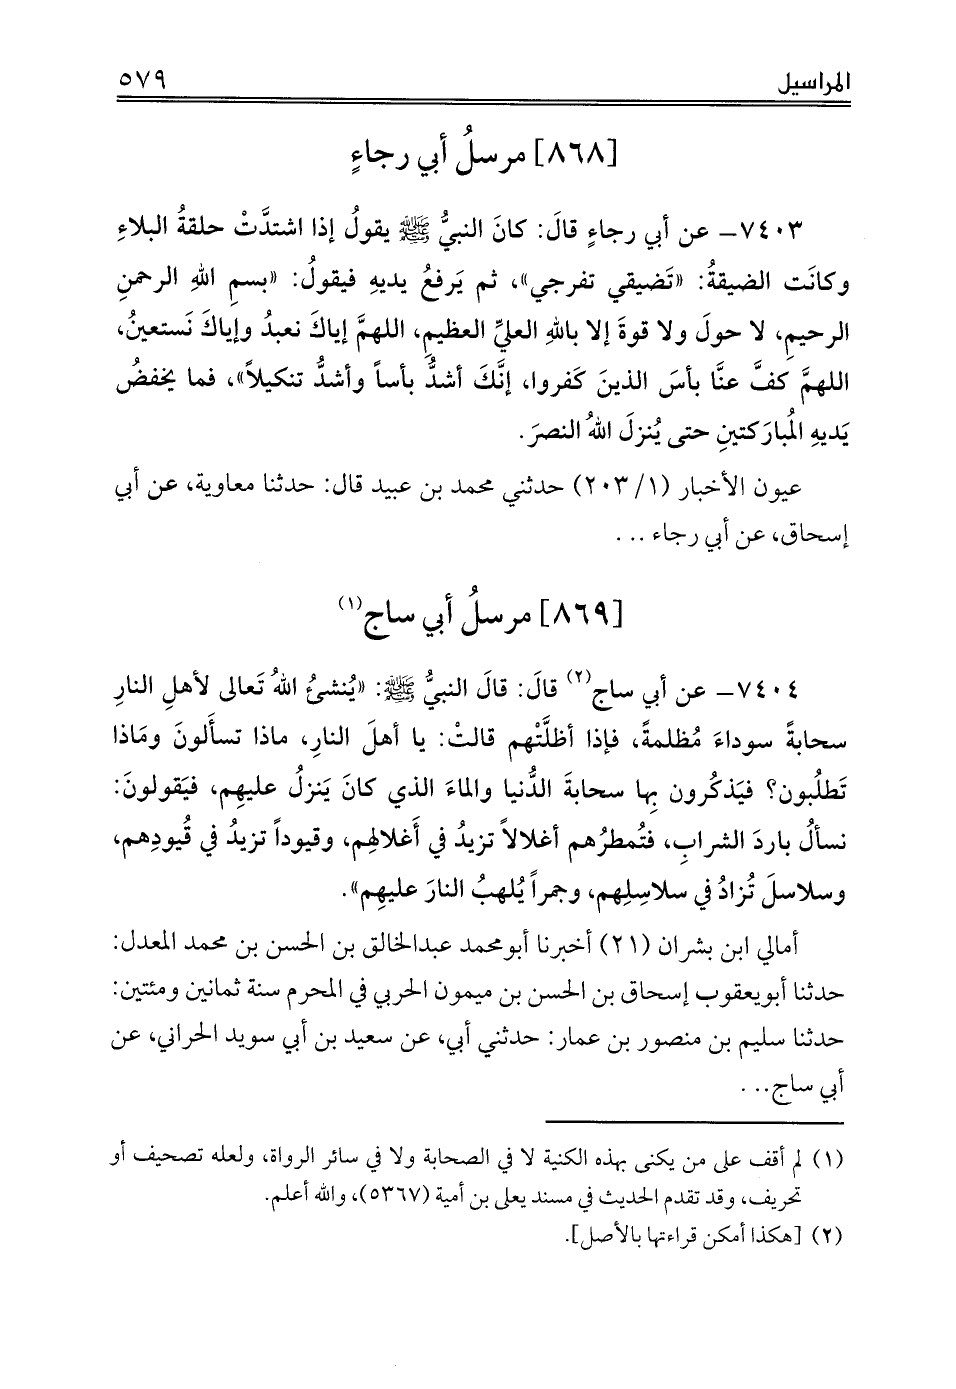 المراسيل ٥٧٩
[٨٦٨] مرسلُ أبي رجاءٍ
٧٤٠٣ـ عن أبي رجاءٍ قالَ: كانَ النبيُّ ﷺ يقولُ إذا اشتدَّتْ حلقةُ البلاءِ
وكانَت الضيقةُ: «تَضيقي تفرجي»، ثم يَرفعُ يديهِ فيقولُ: «بسمِ اللهِ الرحمنِ
الرحيمِ، لا حولَ ولا قوةَ إلا باللهِ العليِّ العظيمِ، اللهمَّ إياكَ نعبدُ وإياكَ نَستعينُ،
اللهمَّ كفَّ عنَّا بأسَ الذينَ كَفروا، إنَّكَ أشدُّ بأساً وأشدُّ تنكيلاً»، فما يخفضُ
يَديهِ المُبارَكتينِ حتى يُنزلَ اللهُ النصرَ.
عيون الأخبار (١/ ٢٠٣) حدثني محمد بن عبيد قال: حدثنا معاوية، عن أبي
إسحاق، عن أبي رجاء ...
[٨٦٩] مرسلُ أبي ساج(١)
٧٤٠٤ـ عن أبي ساج(٢) قالَ: قالَ النبيُّ ﷺ: «يُنشئُ اللهُ تَعالى لأهلِ النارِ
سحابةً سوداءَ مُظلمةً، فإذا أظلَّتْهم قالتْ: يا أهلَ النارِ، ماذا تسأَلونَ ومَاذا
تَطلُبون؟ فيَذكُرون بِها سحابةَ الدُّنيا والماءَ الذي كانَ يَنزلُ عليهِم، فيَقولونَ:
نسألُ باردَ الشرابِ، فتُمطرُهم أغلالاً تزيدُ في أَغلالِهم، وقيوداً تزيدُ في قُيودِهم،
وسلاسلَ تُزادُ في سلاسِلِهم، وجمراً يُلهبُ النارَ عليهِم».
أمالي ابن بشران (٢١) أخبرنا أبومحمد عبدالخالق بن الحسن بن محمد المعدل:
حدثنا أبويعقوب إسحاق بن الحسن بن ميمون الحربي في المحرم سنة ثمانين ومئتين:
حدثنا سليم بن منصور بن عمار: حدثني أبي، عن سعيد بن أبي سويد الحراني، عن
أبي ساج...
(١) لم أقف على من يكنى بهذه الكنية لا في الصحابة ولا في سائر الرواة، ولعله تصحيف أو
تحريف، وقد تقدم الحديث في مسند يعلى بن أمية (٥٣٦٧)، والله أعلم.
(٢) [هكذا أمكن قراءتها بالأصل].